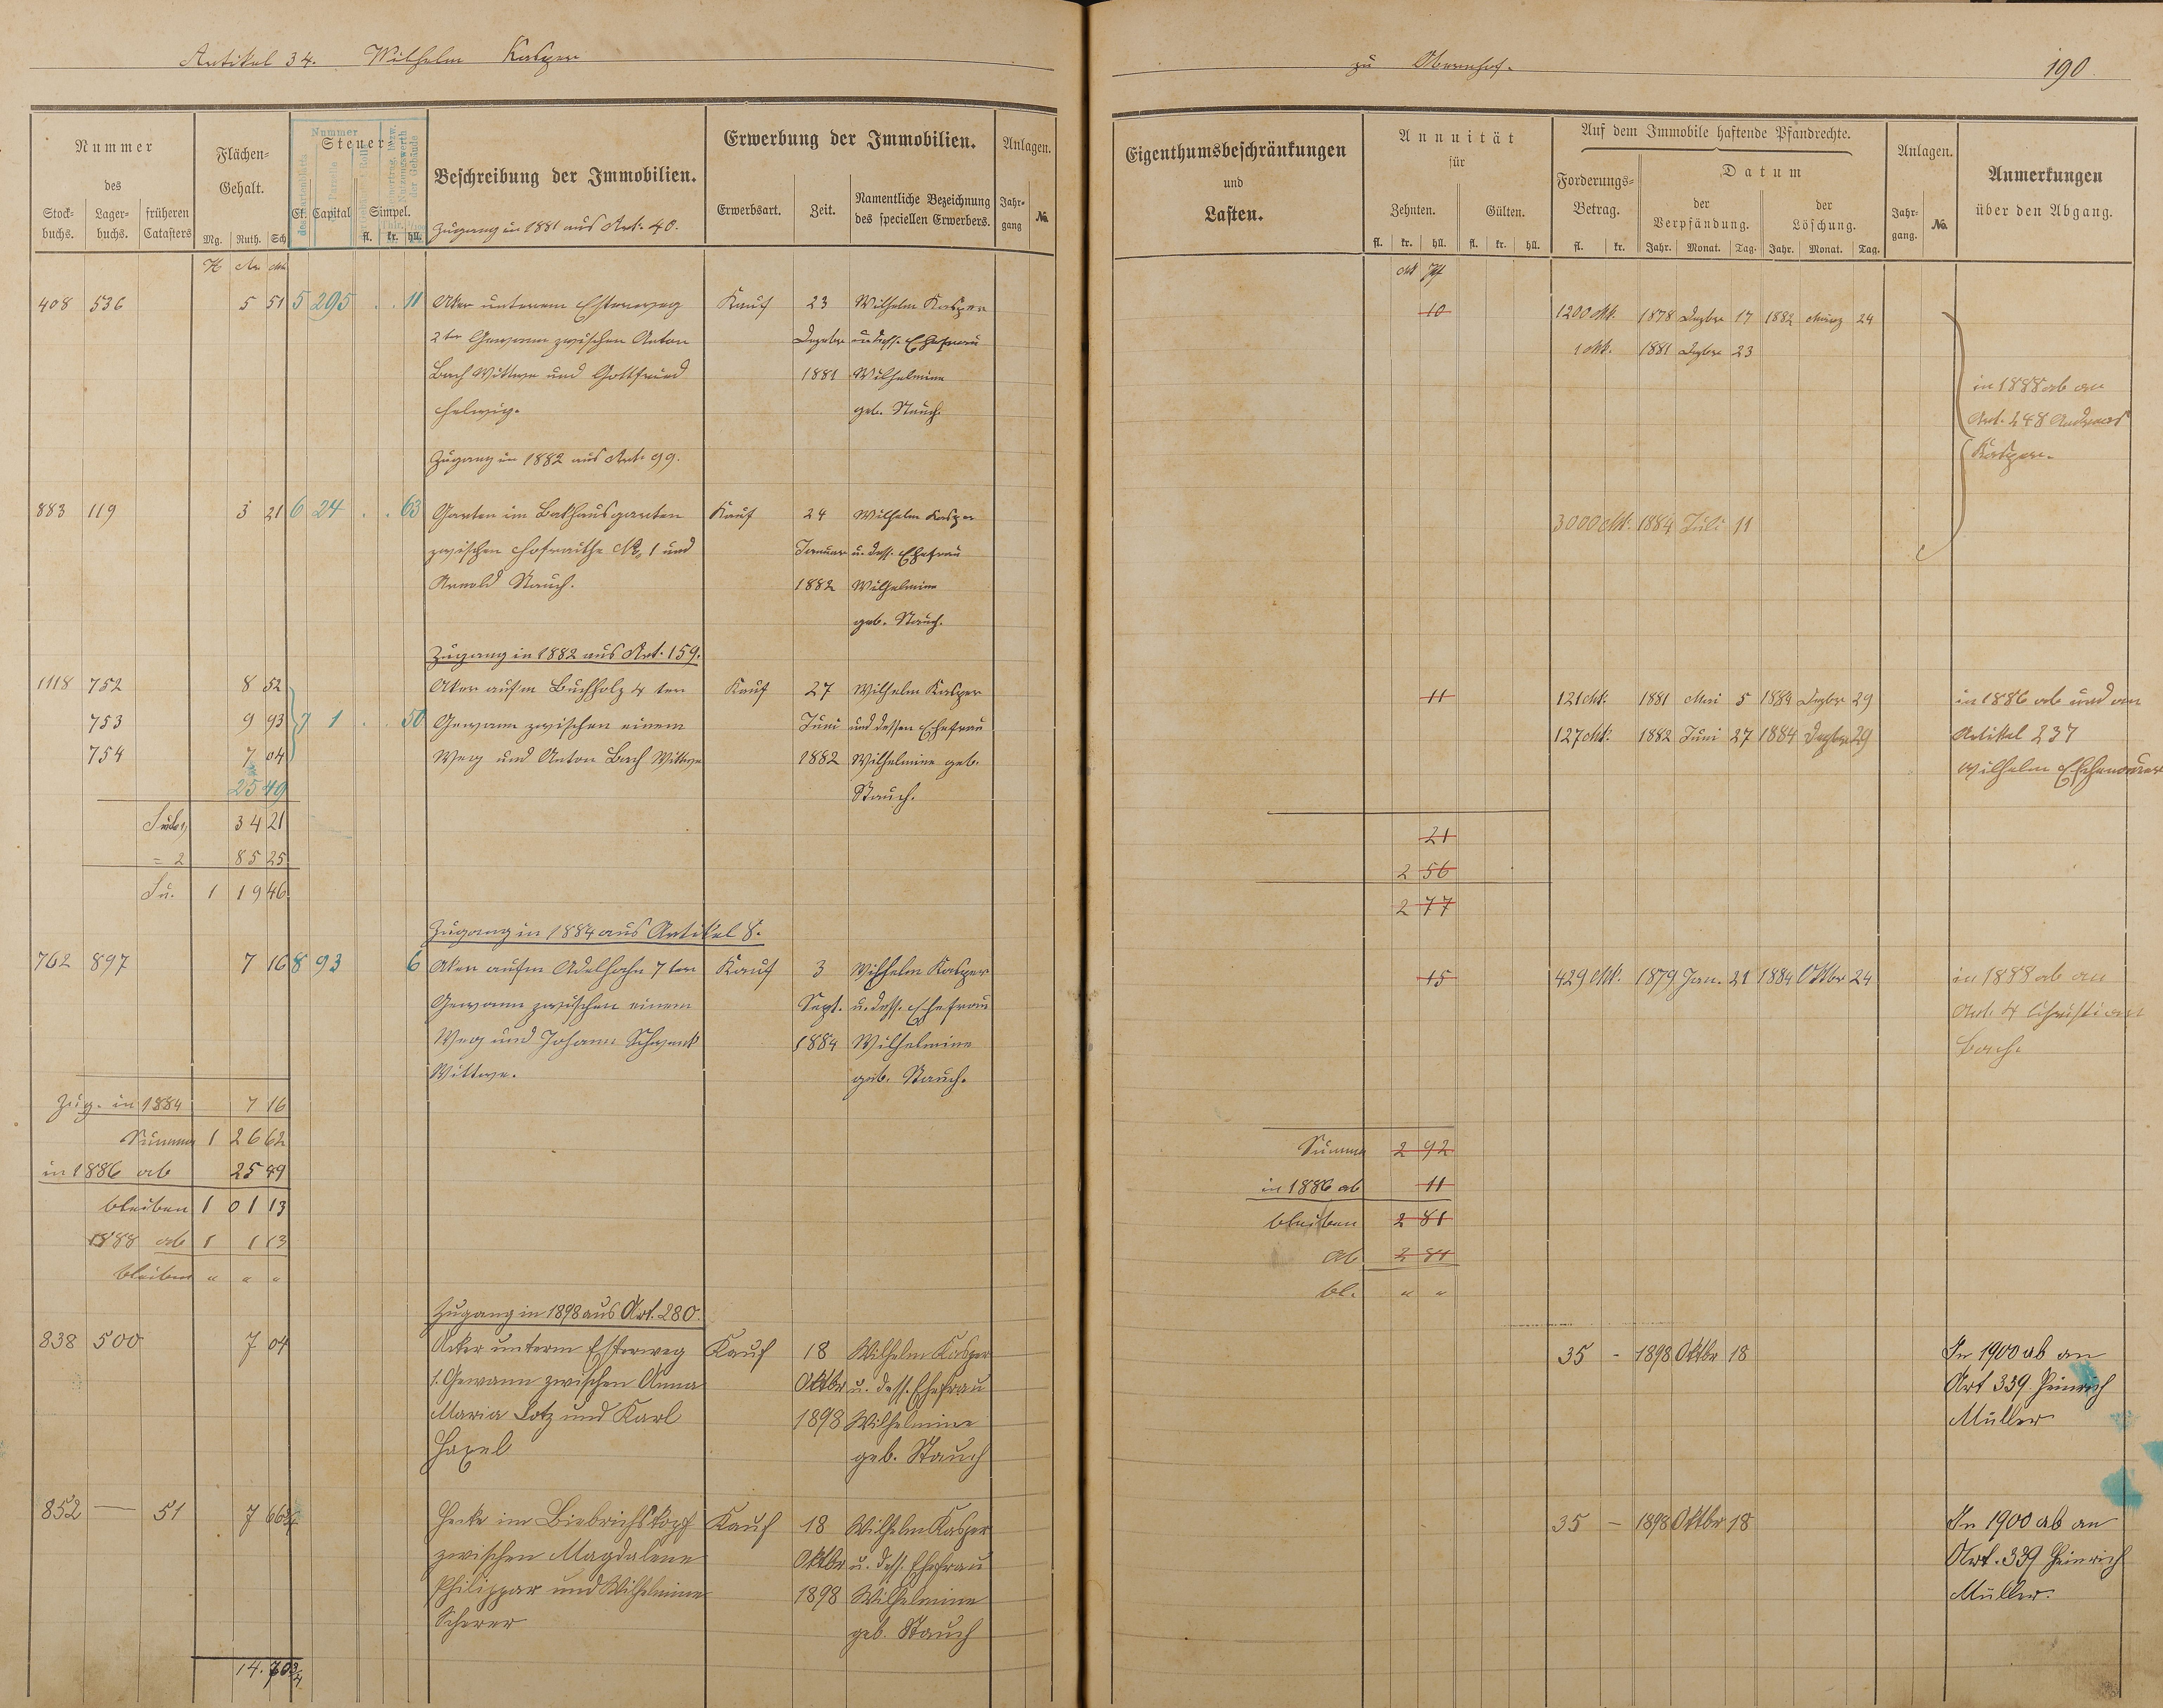 Artikel 34. Wilhelm Kasper
zu Obernhof.
190
Nummer
des
Stock-
buchs.
Lager-
buchs.
früheren
Catasters
Flächen-
Gehalt.
Mg. Ruth. Sch
Steuer
Nummer
Cl. Capital Simpel.
fl. kr. hll.
Beschreibung der Immobilien.
Zugang in 1881 aus Art. 40.
Erwerbung der Immobilien.
Erwerbsart. Zeit.
Namentliche Bezeichnung
des speciellen Erwerbers.
Anlagen.
Jahr-
gang
No.
Eigenthumsbeschränkungen
und
Lasten.
Annuität
für
Zehnten. Gülten.
fl. kr. hll. fl. kr. hll.
Auf dem Immobile haftende Pfandrechte.
Forderungs-
Betrag.
fl. kr.
Datum
der
Verpfändung.
der
Löschung.
Jahr. Monat. Tag. Jahr. Monat. Tag.
Anlagen.
Jahr-
gang.
No.
Anmerkungen
über den Abgang.
408 536 5 51 5 295 . . 11 Aker unterem Esterweg Kauf 23 Wilhelm Kasper 10 1200 Mk. 1878 Dezbr 17 1882 März 24
2ter Gewann zwischen Anton Dezeber u. dess. Ehefrau 1 Mk. 1881 Dzbr 23
Bach Wittwe und Gottfried 1881 Wilhelmine in 1888 ab an
Helwig. geb. Stauch. Art. 248 Andreas
Zugang in 1882 aus Art. 99. Kasper.
883 119 3 21 6 24 . . 63 Garten im Bakhausgarten Kauf 24 Wilhelm Kasper 3000 Mk. 1884 Juli 11
zwischen Hofraithe No. 1 und Januar u. dess. Ehefrau
Arnold Stauch. 1882 Wilhelmine
geb. Stauch.
Zugang in 1882 aus Art. 159.
1118 752 8 52 Aker aufm Buchholz 4 ter Kauf 27 Wilhelm Kasper 11 121 Mk. 1881 Mai 5 1884 Dezbr 29 in 1886 ab und an
753 9 93 7 1 . . 50 Gewann zwischen einem Juni und dessen Ehefrau 127 Mk. 1882 Juni 27 1884 Dezbr 29 Artikel 237
754 7 04 Weg und Anton Bach Wittwe 1882 Wilhelmine geb. Wilhelm
25 49 Stauch.
34 21 21
= 2 85 25 2 56
Su. 1 19 46 2 77
Zugang in 1884 aus Artikel 8.
762 897 7 16 8 93 6 Aker aufm Adelhahn 7 ter Kauf 3 Wilhelm Kasper 15 429 Mk. 1879 Jan. 21 1884 Oktbr 24 in 1888 ab an
Gewann zwischen einem Sept. u. dess. Ehefrau Art. 4 Christian
Weg und Johann Schwenk 1884 Wilhelmine Bach.
Wittwe. geb. Stauch.
Zug. in 1884 7 16
Summa 1 26 62 Summa 2 92
in 1886 ab 25 49 in 1886 ab 11
bleiben 1 01 13 bleiben 2 81
1888 ab 1 1 13 ab 2 81
bleiben " " " bl. " "
Zugang in 1898 aus Art. 280.
838 500 7 04 Acker unterm Esterweg Kauf 18 Wilhelm Kasper 35 - 1898 Oktbr 18 In 1900 ab an
1. Gewann zwischen Anna Oktbr u. dess. Ehefrau Art 339 Heinrich
Maria Lotz und Karl 1898 Wilhelmine Müller
Haxel geb. Stauch
852 — 51 7 66 Hecke im Biebrichskopf Kauf 18 Wilhelm Kasper 35 — 1898 Oktbr 18 In 1900 ab an
zwischen Magdalene Oktbr u. dess. Ehefrau Art. 339 Heinrich
Philippar und Wilhelmine 1898 Wilhelmine Müller.
Scherer geb. Stauch
14. 70